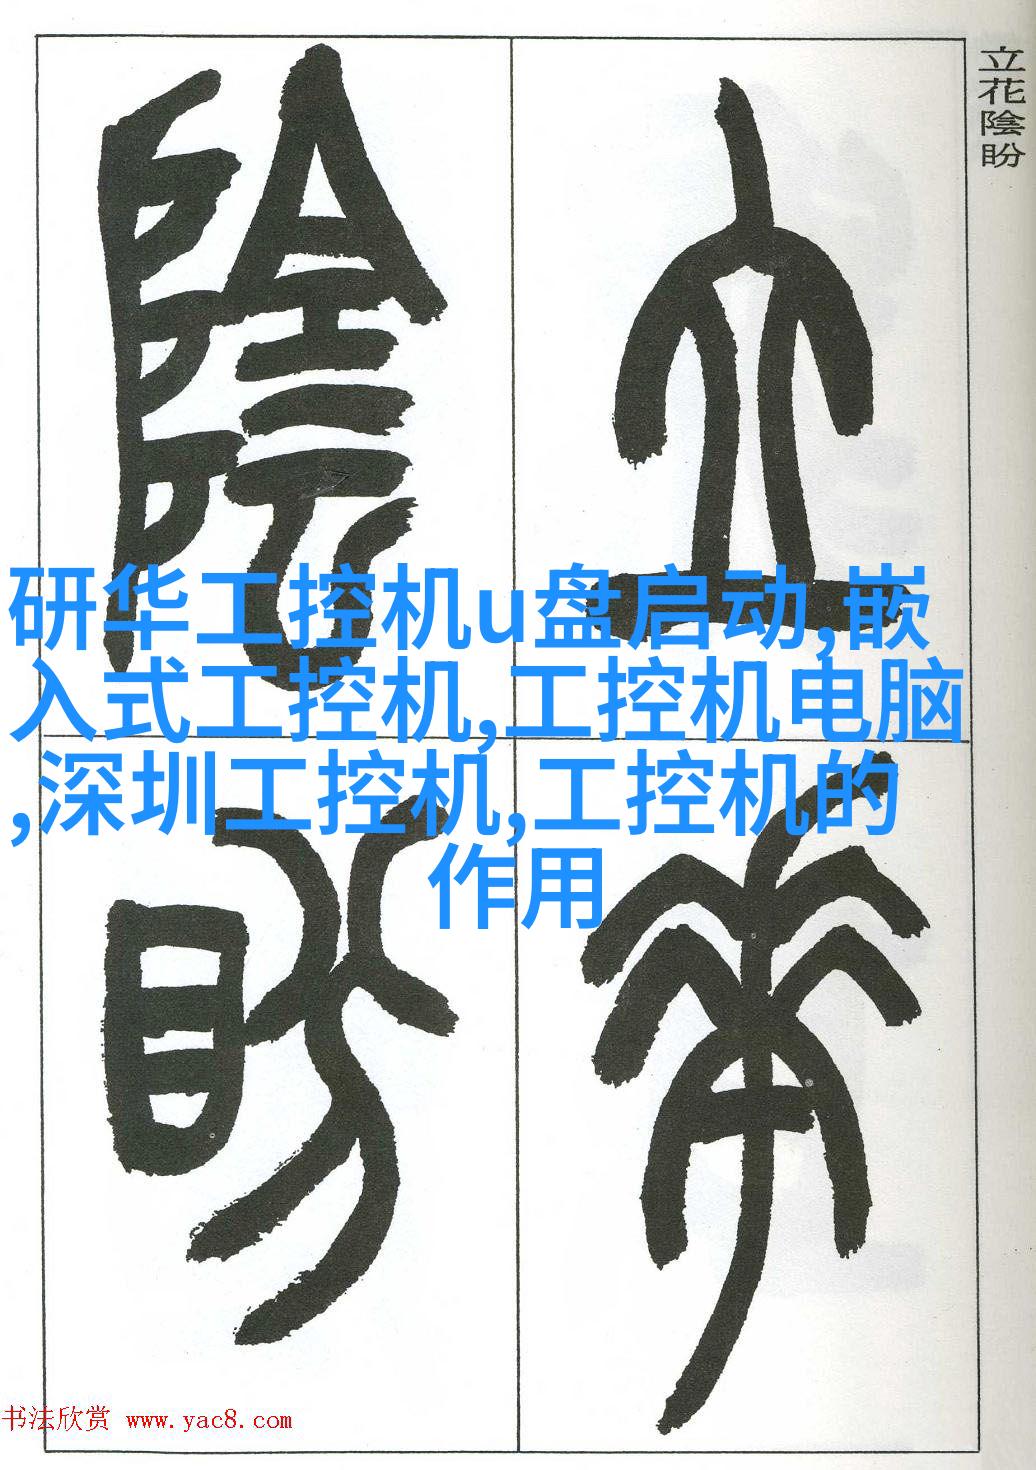 立花陰盼
立
花
陰
盼
研华工控机u盘启动,嵌
入式工控机,工控机电脑
,深圳工控机,工控机的
作用
书法欣赏 www.yac8.com